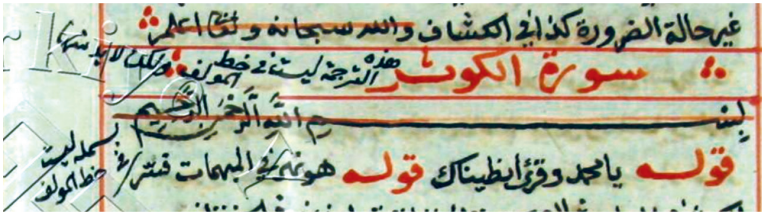 غير حالة الضرورة كذا في الكشاف والله سبحانه وتعالى اعلم
سورة الكوثر هذه الترجمة ليست في خط المولف ولكن لا بد منها
بسم الله الرحمن الرحيم
قوله يا محمد وقرئ انطيناك قوله هو نهر في
بسمله ليست في خط المولف